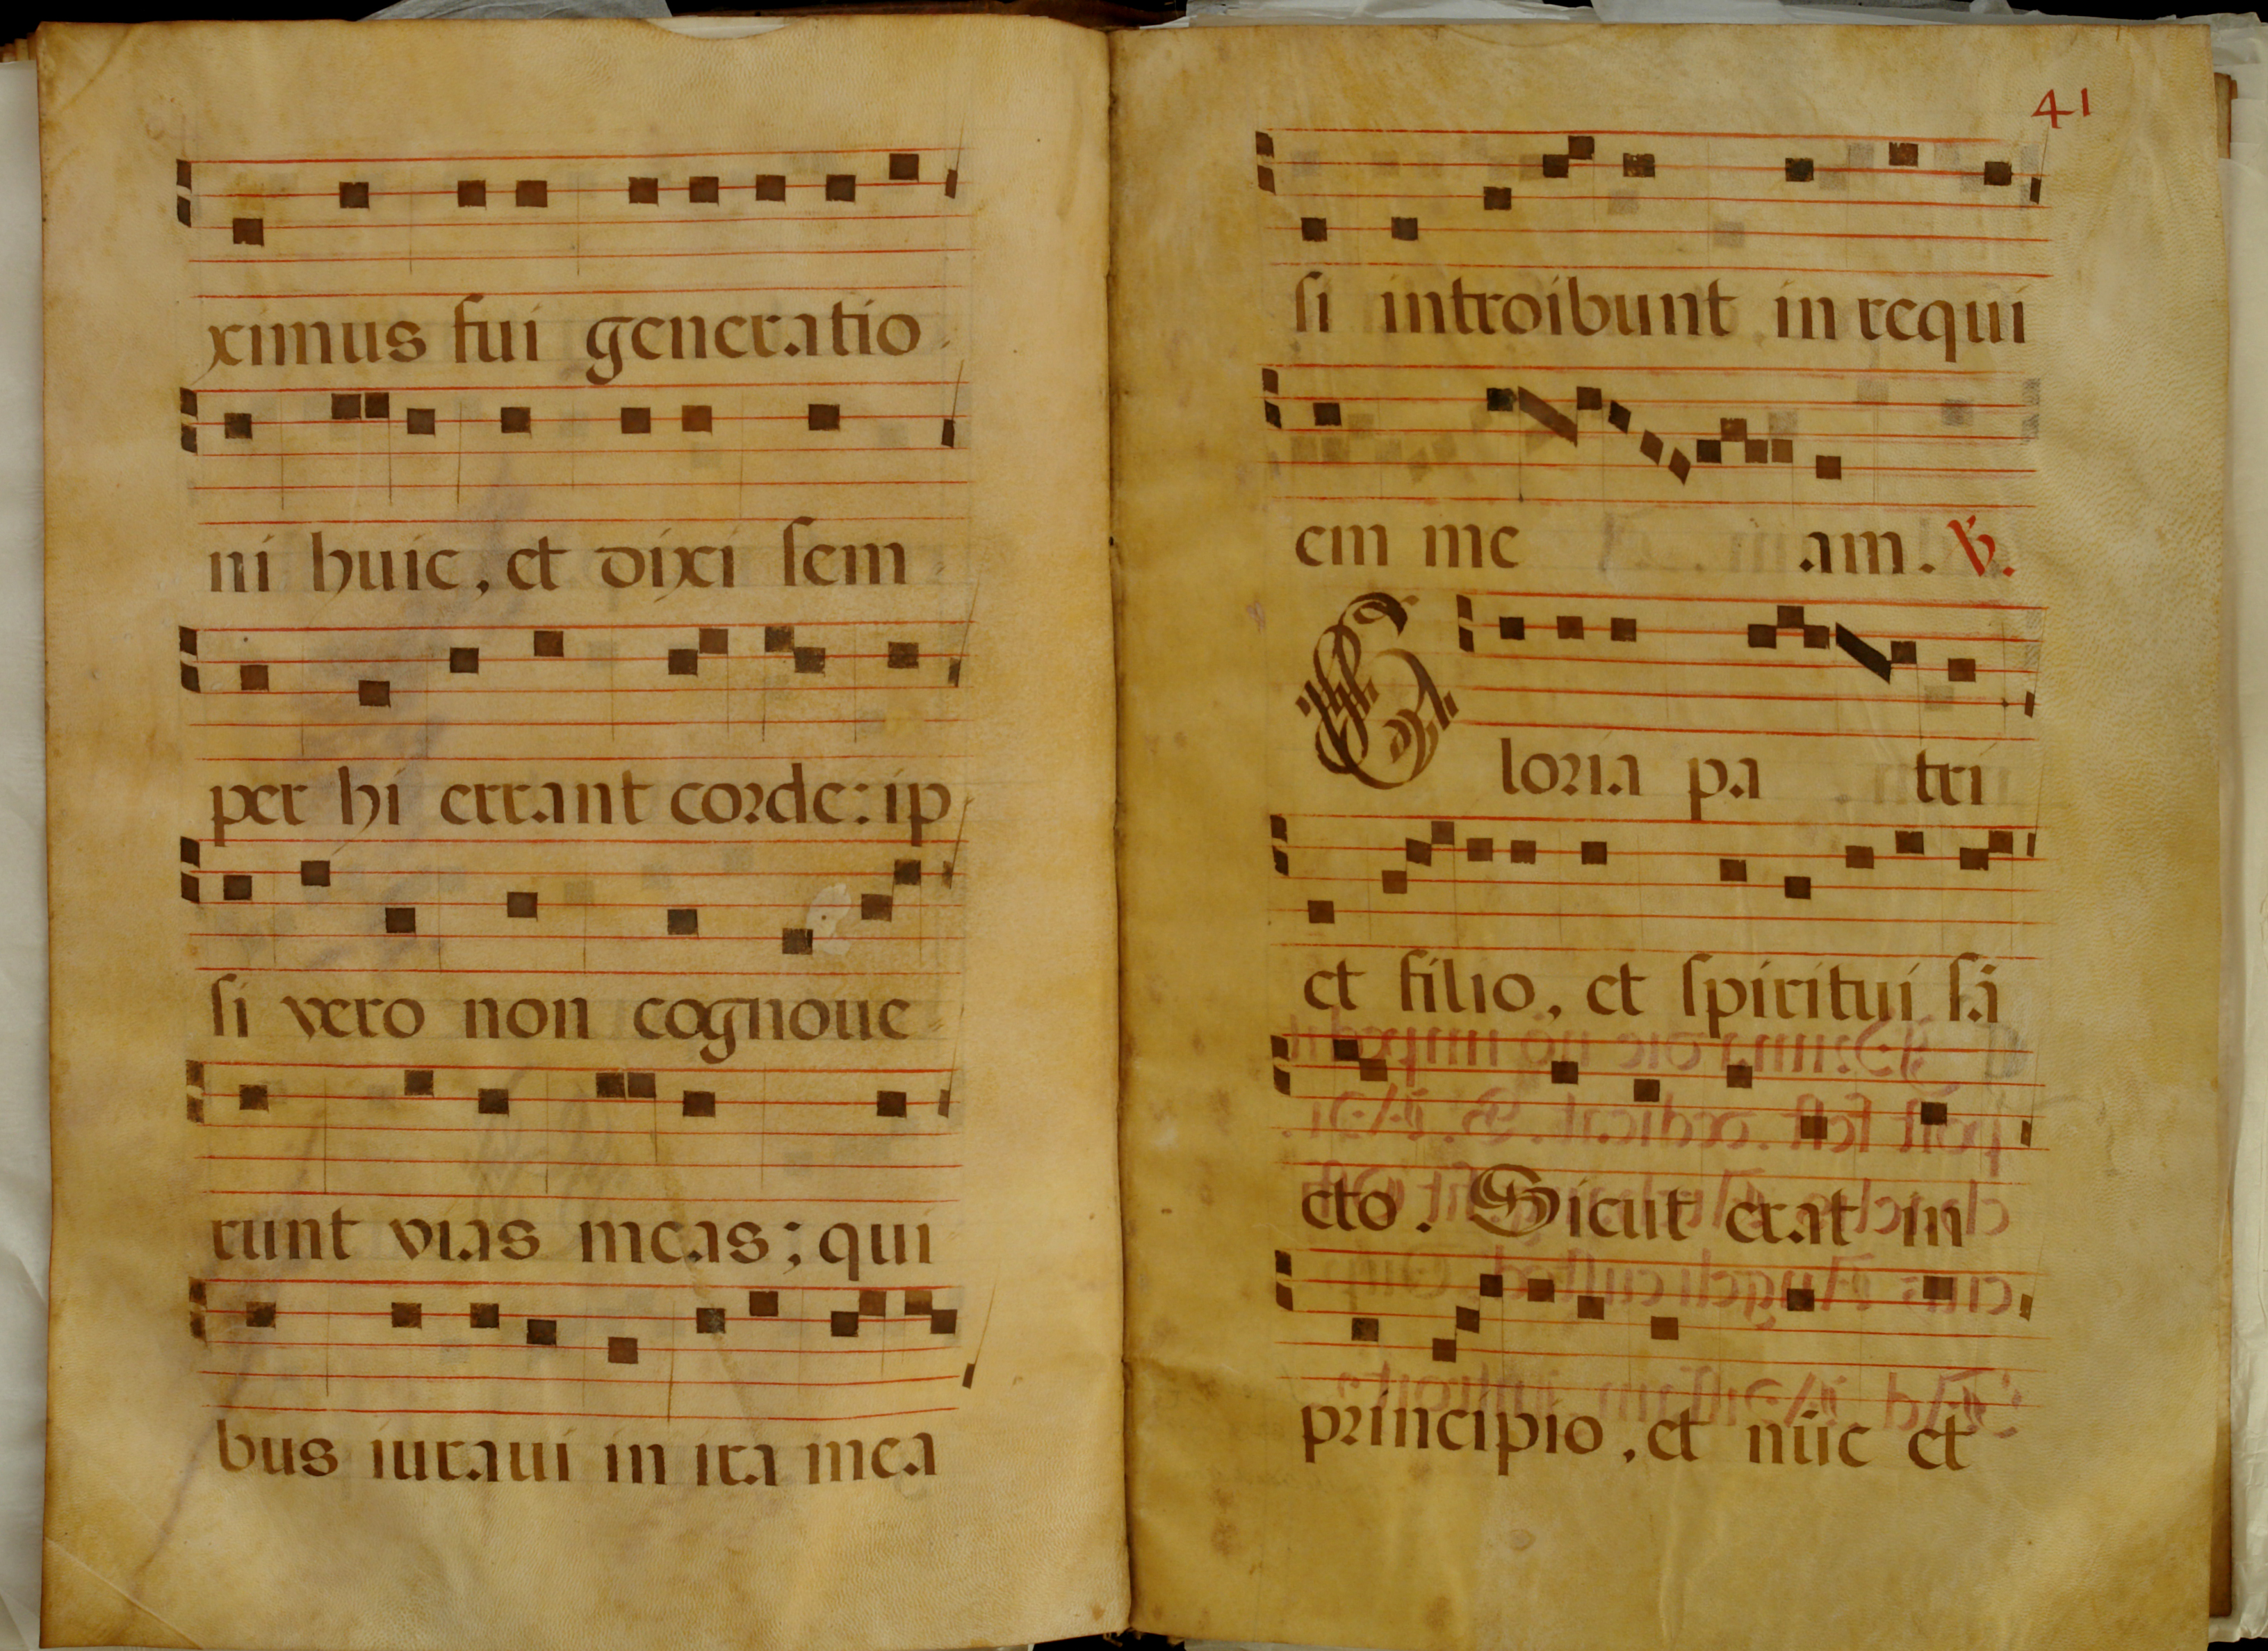 ximus fui generatio
ni huic, et dixi sem
per hi errant corde: ip
si vero non cognoue
runt vias meas; qui
bus iuraui in ira mea
41
si introibunt in requi
em me am. ℣.
Gloria pa tri
et filio, et spiritui sā
cto. Sicut erat in
principio, et nūc et